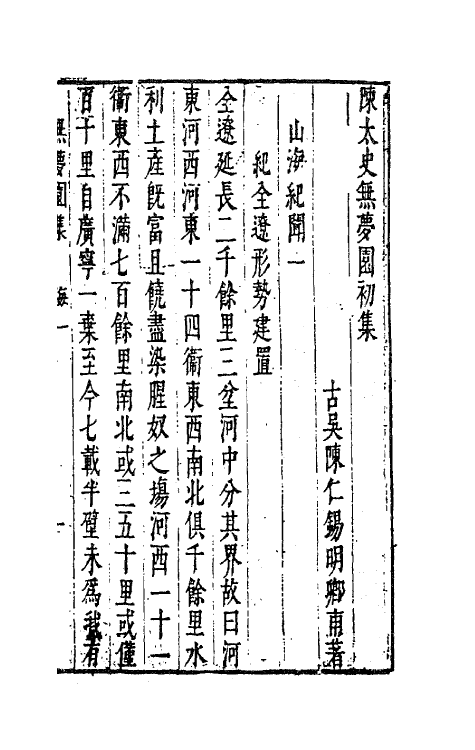 陳太史無夢園初集
古吳陳仁錫明卿甫著
山海紀聞一
紀全遼形勢建置
全遼延長二千餘里三岔河中分其界故曰河
東河西河東一十四衞東西南北俱千餘里水
利土產旣富且饒盡染腥奴之塲河西一十一
衞東西不滿七百餘里南北或三五十里或僅
百十里自廣寧一棄至今七載半壁未爲我有
無夢園集 海一 一